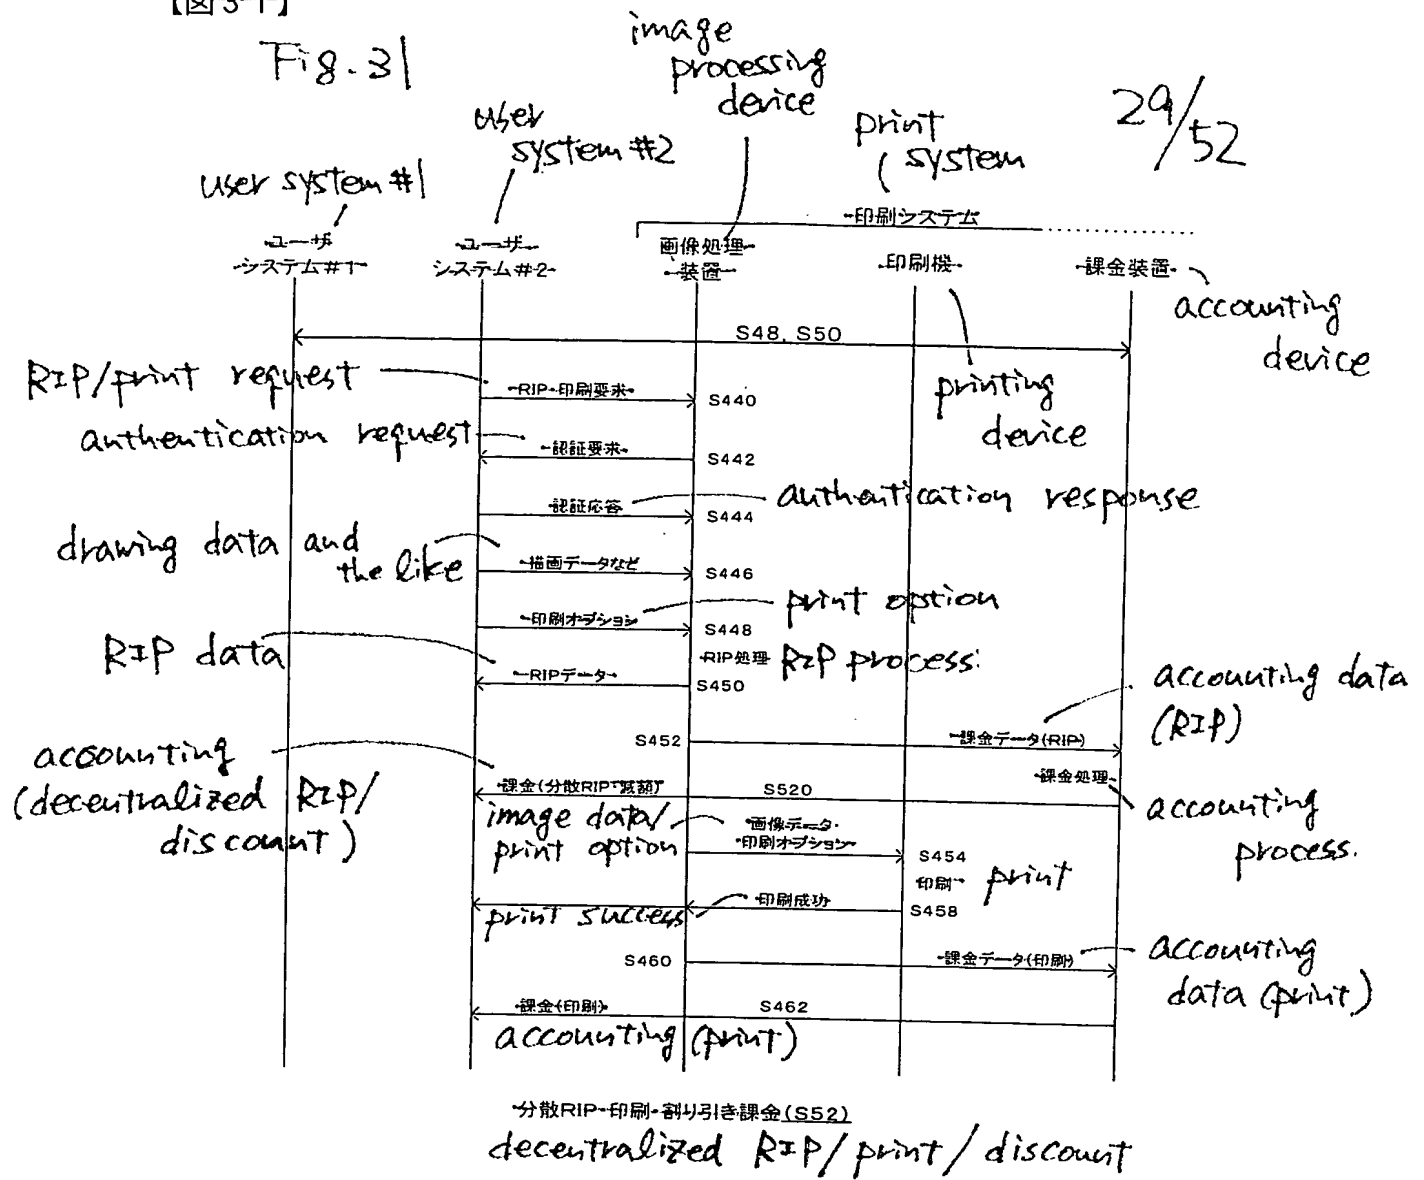 【図31】
Fig. 31
29/52
image
processing
device
user
system #2
print
system
user system #1
印刷システム
ユーザ
システム#1
ユーザ
システム#2
画像処理
装置
印刷機
課金装置
accounting
device
S48, S50
printing
device
RIP/print request
RIP・印刷要求
S440
authentication request
認証要求
S442
認証応答
authentication response
S444
drawing data and
the like
描画データなど
S446
印刷オプション
print option
S448
RIP data
RIP処理
RIP process
RIPデータ
S450
accounting data
(RIP)
S452
課金データ(RIP)
accounting
(decentralized RIP/
discount)
課金処理
accounting
process.
課金(分散RIP・減額)
S520
image data/
print option
画像データ・
印刷オプション
S454
印刷
print
印刷成功
print success
S458
S460
課金データ(印刷)
accounting
data (print)
課金(印刷)
S462
accounting (print)
分散RIP・印刷・割り引き課金(S52)
decentralized RIP/print/discount